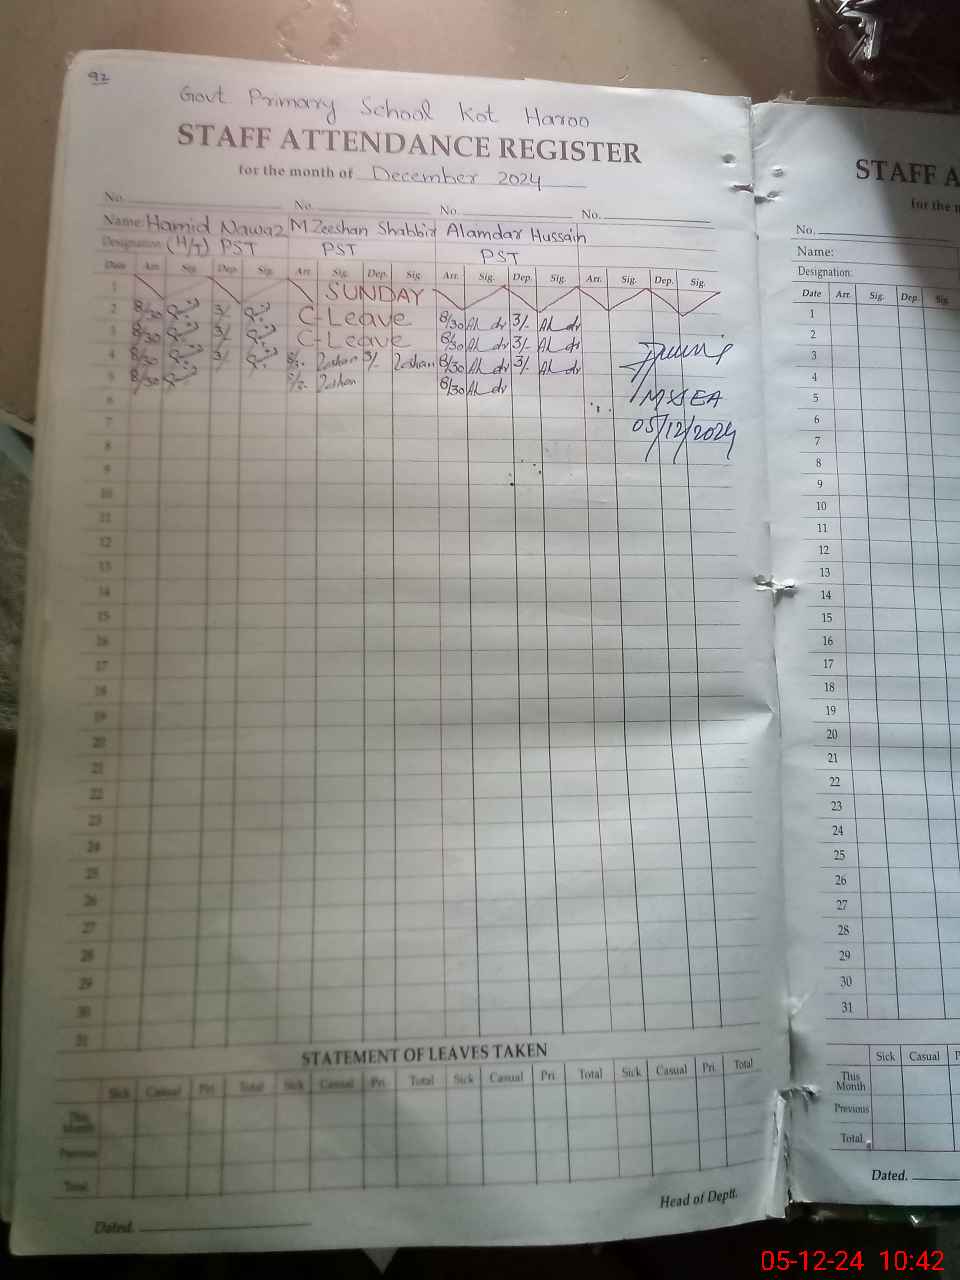 92
Govt. Primary School Kot Haroo
STAFF ATTENDANCE REGISTER
for the month of December 2024
No. No. No. No.
Name: Hamid Nawaz M Zeeshan Shabbir Alamdar Hussain
Designation: (H/T) PST PST PST
Date Arr. Sig. Dep. Sig. Arr. Sig. Dep. Sig. Arr. Sig. Dep. Sig. Arr. Sig. Dep. Sig.
1 SUNDAY
2 8/30 3/- C-Leave 8/30 Al dr 3/- Al dr
3 8/30 3/- C-Leave 8/30 Al dr 3/- Al dr
4 8/30 3/- Zeshan 3/- Zeshan 8/30 Al dr 3/- Al dr
5 8/30 Zeshan 8/30 Al dr
6 MSSEA
7 05/12/2024
8
9
10
11
12
13
14
15
16
17
18
19
20
21
22
23
24
25
26
27
28
29
30
31
STATEMENT OF LEAVES TAKEN
Sick Casual Pri. Total Sick Casual Pri. Total Sick Casual Pri. Total Sick Casual Pri. Total
This Month
Previous
Total
Head of Deptt.
Dated.
STAFF A
for the m
No.
Name:
Designation:
Date Arr. Sig. Dep. Sig.
1
2
3
4
5
6
7
8
9
10
11
12
13
14
15
16
17
18
19
20
21
22
23
24
25
26
27
28
29
30
31
Sick Casual P
This Month
Previous
Total
Dated.
05-12-24 10:42